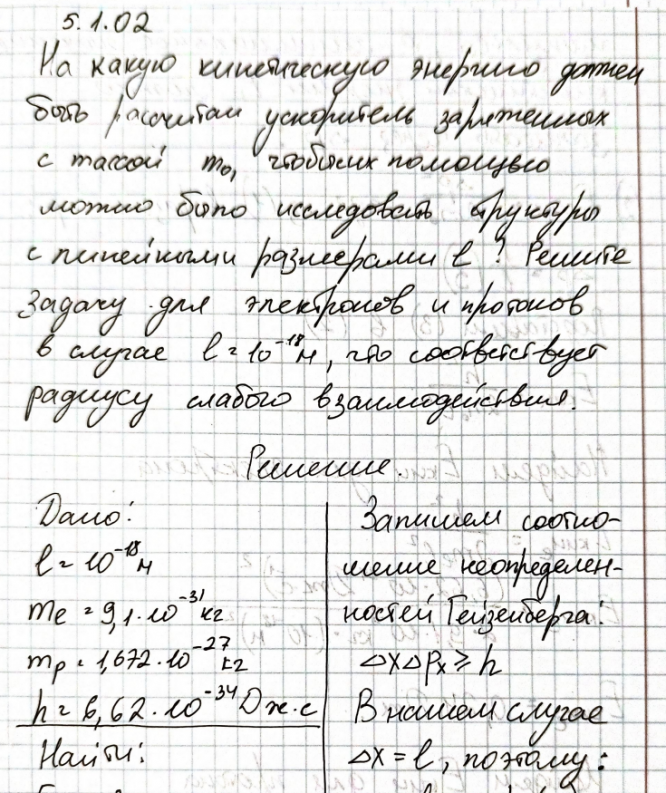 5.1.02
На какую кинетическую энергию должен
быть рассчитан ускоритель заряженных
с массой m₀, чтобы их помощью
можно было исследовать структуры
с линейными размерами l? Решите
задачу для электронов и протонов
в случае l = 10⁻¹⁸ м, что соответствует
радиусу слабого взаимодействия.
Решение.
Дано:
l = 10⁻¹⁸ м
me = 9,1·10⁻³¹ кг
mp = 1,672·10⁻²⁷ кг
h = 6,62·10⁻³⁴ Дж·с
Найти:
Запишем соотно-
шение неопределен-
ностей Гейзенберга:
ΔxΔpx ≥ h
В нашем случае
Δx = l, поэтому: